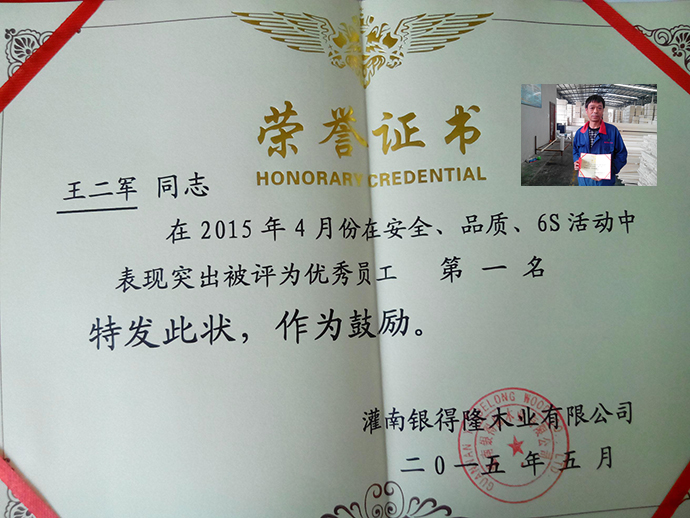 荣誉证书
HONORARY CREDENTIAL
王二军 同志
在2015年4月份在安全、品质、6S活动中
表现突出被评为优秀员工 第一名
特发此状，作为鼓励。
灌南银得隆木业有限公司
二0一五年五月